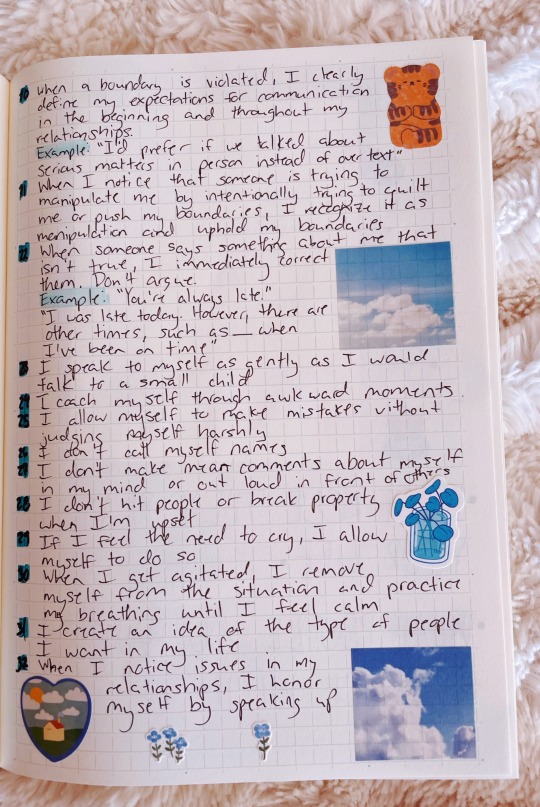 20 when a boundary is violated, I clearly
define my expectations for communication
in the beginning and throughout my
relationships.
Example: "I'd prefer if we talked about
serious matters in person instead of over text"
21 When I notice that someone is trying to
manipulate me by intentionally trying to guilt
me or push my boundaries, I recognize it as
manipulation and uphold my boundaries
22 When someone says something about me that
isn't true, I immediately correct
them. Don't argue.
Example: "You're always late."
"I was late today. However, there are
other times, such as __ when
I've been on time"
23 I speak to myself as gently as I would
talk to a small child
24 I coach myself through awkward moments.
25 I allow myself to make mistakes without
judging myself harshly
26 I don't call myself names
27 I don't make mean comments about myself
in my mind or out loud in front of others
28 I don't hit people or break property
when I'm upset
29 If I feel the need to cry, I allow
myself to do so
30 When I get agitated, I remove
myself from the situation and practice
my breathing until I feel calm
31 I create an idea of the type of people
I want in my life
32 When I notice issues in my
relationships, I honor
myself by speaking up